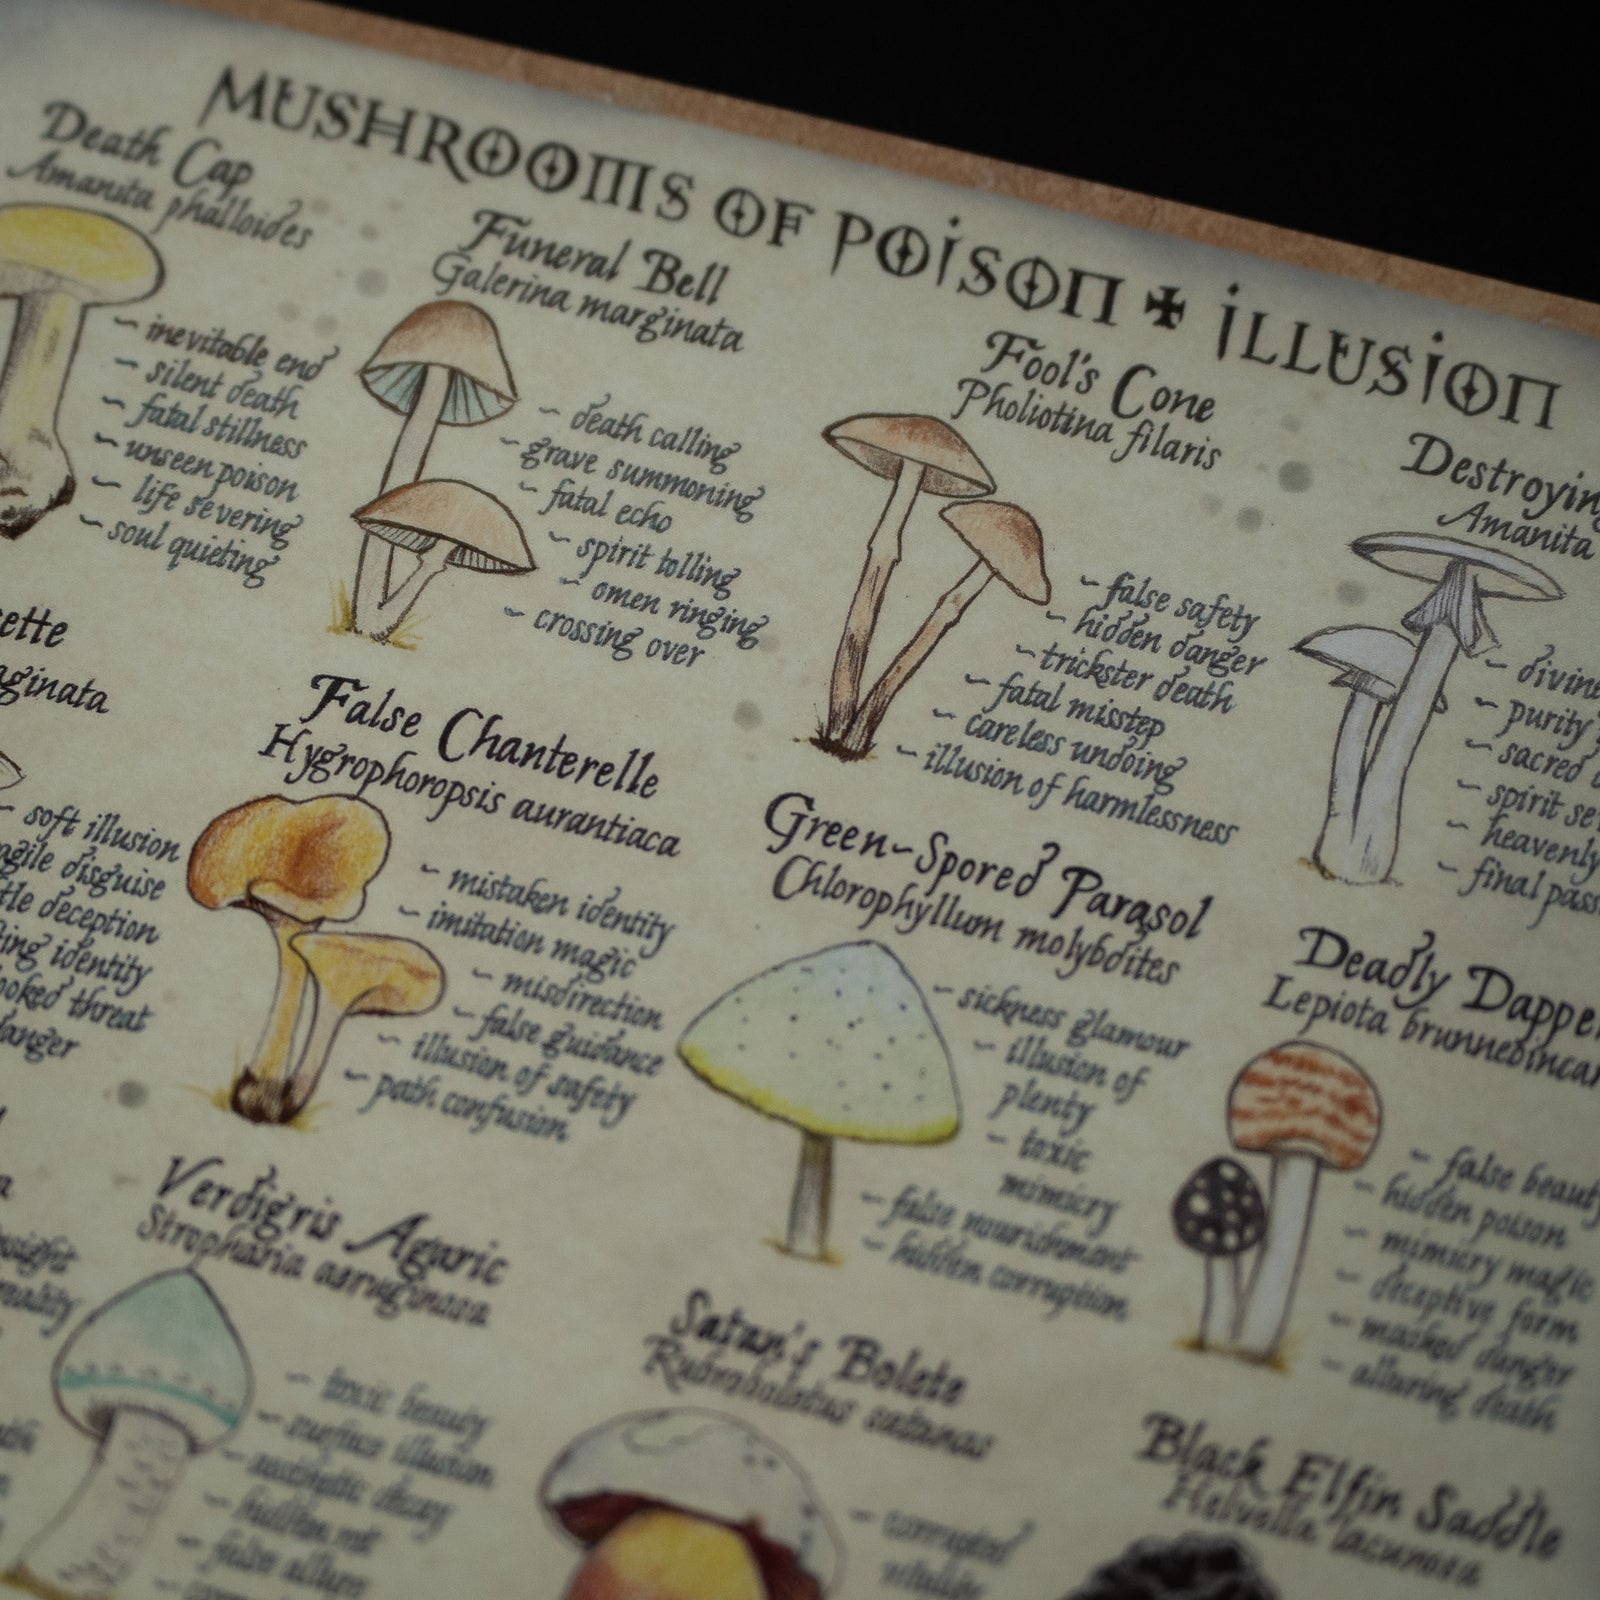 MUSHROOMS OF POISON ✠ ILLUSION
Death Cap
Amanita phalloides
~ inevitable end
~ silent death
~ fatal stillness
~ unseen poison
~ life severing
~ soul quieting
Funeral Bell
Galerina marginata
~ death calling
~ grave summoning
~ fatal echo
~ spirit tolling
~ omen ringing
~ crossing over
Fool's Cone
Pholiotina filaris
~ false safety
~ hidden danger
~ trickster death
~ fatal misstep
~ careless undoing
~ illusion of harmlessness
Destroying
Amanita
~ divine
~ purity
~ sacred
~ spirit se
~ heavenly
~ final pass
ette
aginata
~ soft illusion
agile disguise
tle deception
ting identity
ooked threat
danger
False Chanterelle
Hygrophoropsis aurantiaca
~ mistaken identity
~ imitation magic
~ misdirection
~ false guidance
~ illusion of safety
~ path confusion
Green-Spored Parasol
Chlorophyllum molybdites
~ sickness glamour
~ illusion of
plenty
~ toxic
mimicry
~ false nourishment
~ hidden corruption
Deadly Dapper
Lepiota brunneoincar
~ false beauty
~ hidden poison
~ mimicry magic
~ deceptive form
~ masked danger
~ alluring death
Verdigris Agaric
Stropharia aeruginosa
~ toxic beauty
~ surface illusion
~ aesthetic decay
~ hidden rot
~ false allure
Satan's Bolete
Rubroboletus satanas
~ corrupted
vitality
Black Elfin Saddle
Helvella lacunosa